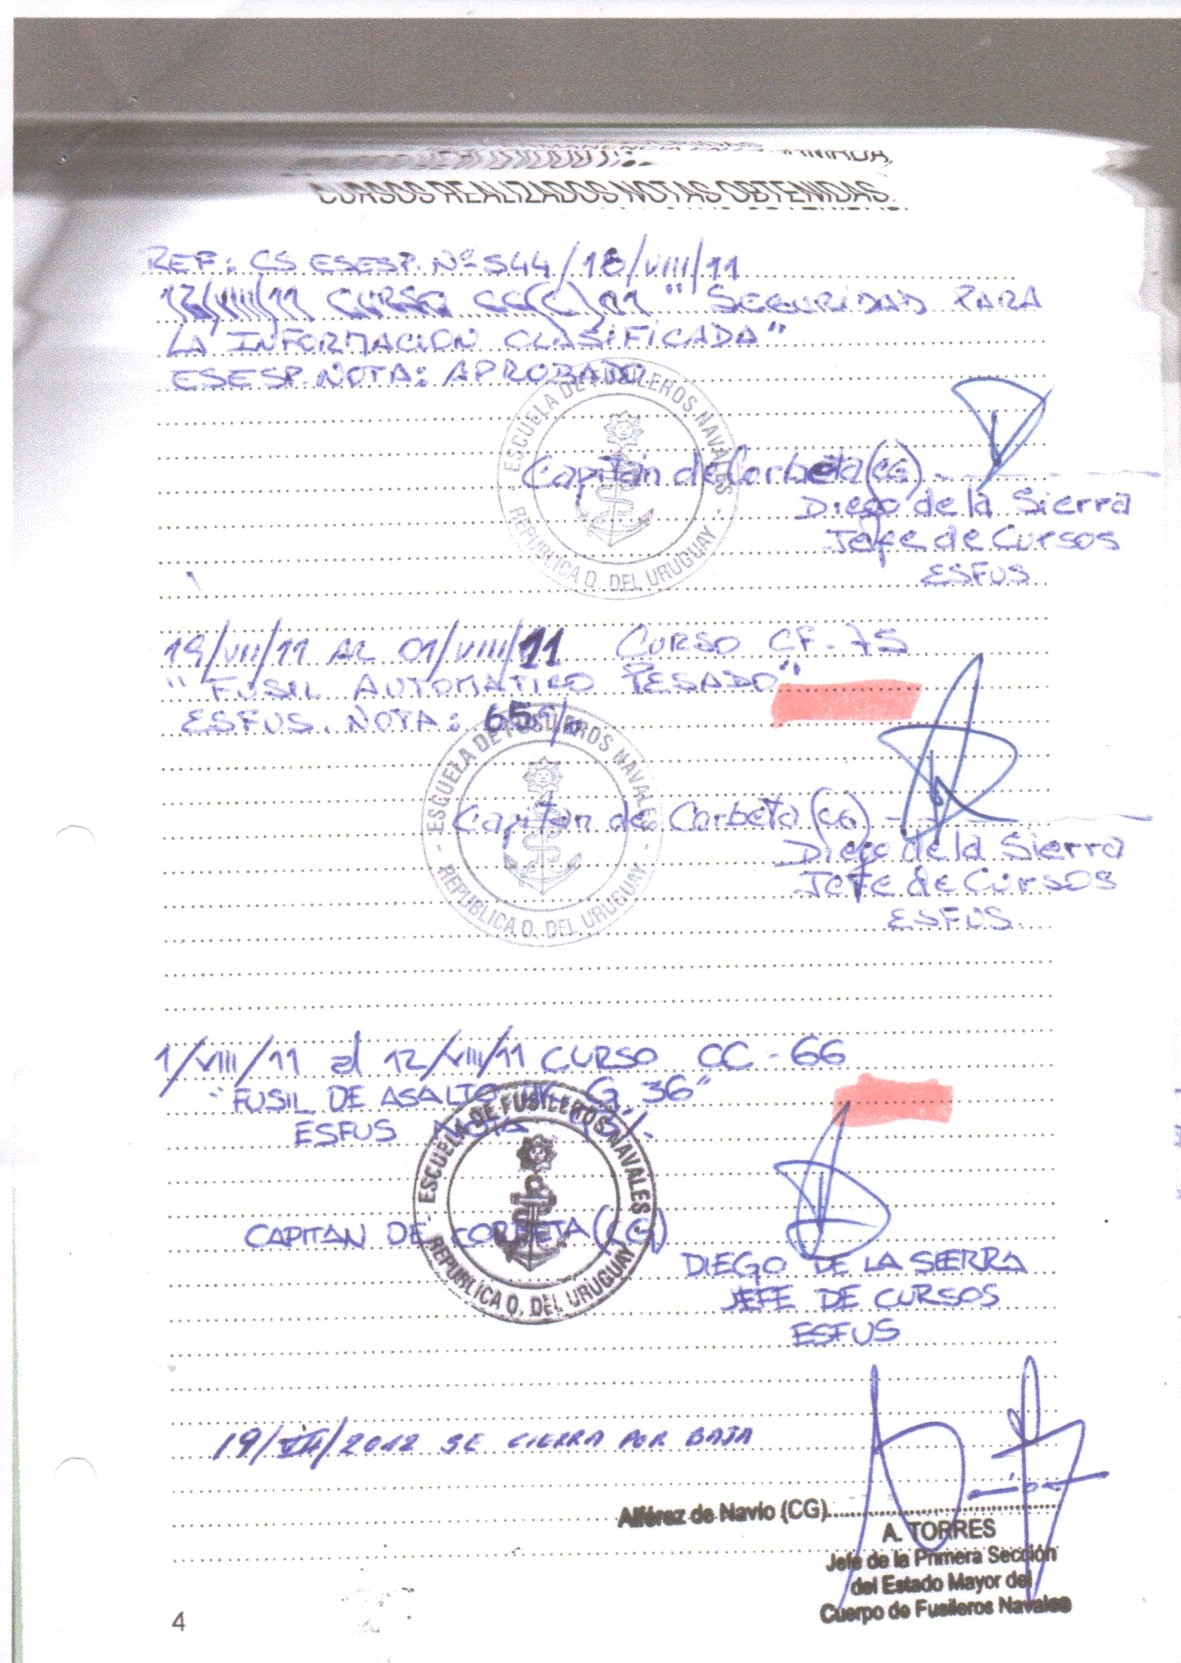 ARMADA.
CURSOS REALIZADOS NOTAS OBTENIDAS.
REF: CS ESESP. Nº 544/18/VIII/11
12/VIII/11 CURSO CC(C)01 "SEGURIDAD PARA
LA INFORMACION CLASIFICADA"
ESESP. NOTA: APROBADO
ESCUELA DE FUSILEROS NAVALES
REPUBLICA O. DEL URUGUAY
Capitán de Corbeta (CG)
Diego de la Sierra
Jefe de Cursos
ESFUS
19/VII/11 AL 01/VIII/11 CURSO CF-75
"FUSIL AUTOMATICO PESADO"
ESFUS. NOTA: 65%
ESCUELA DE FUSILEROS NAVALES
REPUBLICA O. DEL URUGUAY
Capitan de Corbeta (CG)
Diego de la Sierra
Jefe de Cursos
ESFUS.
1/VIII/11 al 12/VIII/11 CURSO CC-66
"FUSIL DE ASALTO G.36"
ESFUS NOTA
ESCUELA DE FUSILEROS NAVALES
REPUBLICA O. DEL URUGUAY
CAPITAN DE CORBETA (CG)
DIEGO DE LA SIERRA
JEFE DE CURSOS
ESFUS
2012 SE CIERRA POR BAJA
Alférez de Navío (CG)
A. TORRES
Jefe de la Primera Sección
del Estado Mayor del
Cuerpo de Fusileros Navales
4